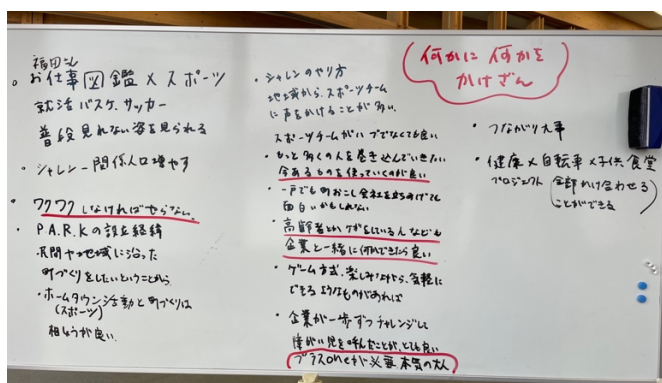 福田さん
お仕事図鑑×スポーツ
就活バスケ、サッカー
普段見れない姿を見られる
・シャレン ー 関係人口増やす
・ワクワクしなければやらない。
・P.A.R.Kの設立経緯
民間や地域に沿った
町づくりをしたいということから
・ホームタウン活動と町づくりは
(スポーツ)
相しょうが良い
・シャレンのやり方
地域から、スポーツチーム
に声をかけることが多い
スポーツチームがハブでなくても良い
・もっと多くの人を巻き込んでいきたい
今あるものを使っていくのが良い
・一戸でも町おこし会社を立ちあげても
面白いかもしれない
・高齢者とかケガをしている人なども
企業と一緒に何かできたら良い
・ゲーム方式、楽しみながら、気軽に
できるようなものがあれば
・企業が一歩ずつチャレンジして
障がい児を呼んだことが、とても良い
プラスoneが必要 本気の大人
何かに何かを
かけざん
・つながり大事
・健康×自転車×子供食堂
プロジェクト (全部かけ合わせる
ことができる